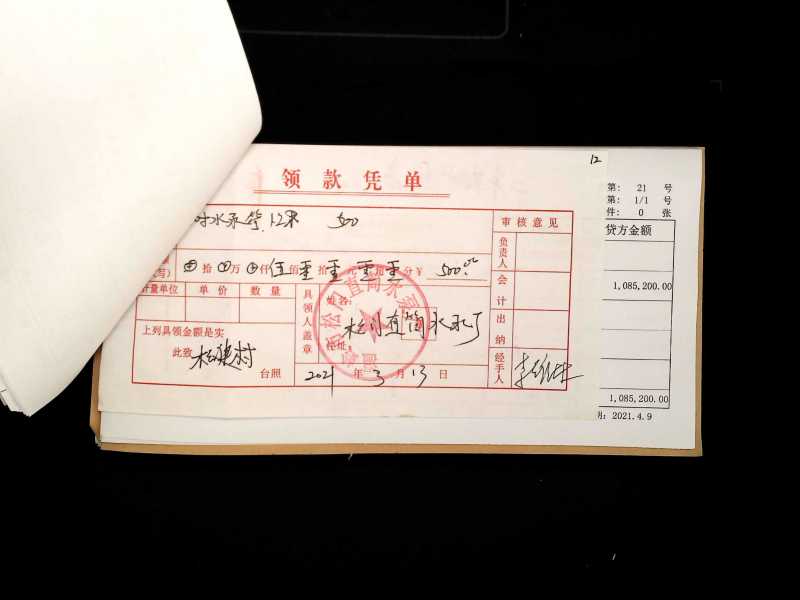 12
领款凭单
吋水泵管12米 500
审核意见
负责人
(写) ⊕拾⊕万⊕仟伍佰零拾零元零角零分¥ 500.00
计量单位 单价 数量
具领人盖章
姓名:
松门直筒水泵厂
住址:
会计
上列具领金额是实
此致
台照
2021年3月13日
出纳
经手人
第: 21 号
第: 1/1 号
件: 0 张
贷方金额
1,085,200.00
1,085,200.00
: 2021.4.9